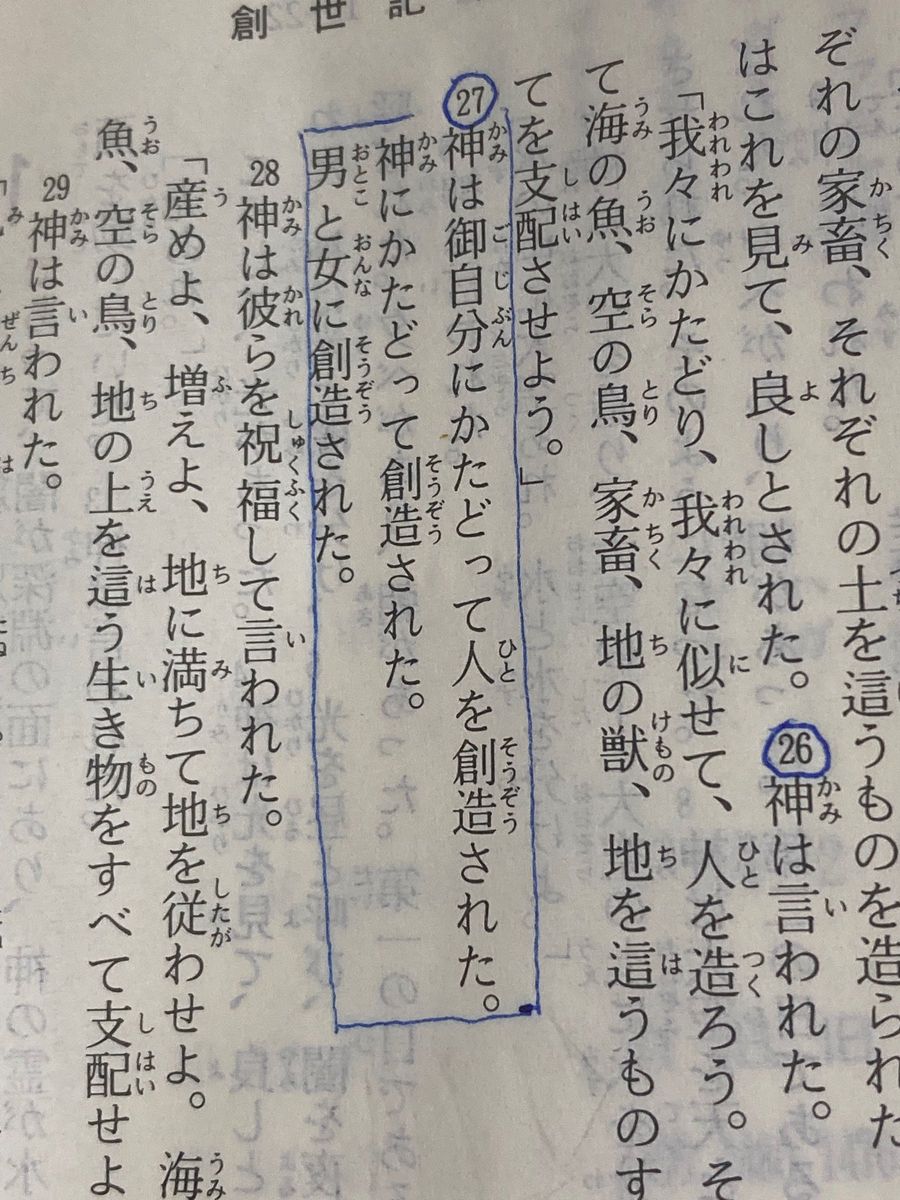 創世記
ぞれの家畜、それぞれの土を這うものを造られた
はこれを見て、良しとされた。26神は言われた。
「我々にかたどり、我々に似せて、人を造ろう。そ
て海の魚、空の鳥、家畜、地の獣、地を這うものす
てを支配させよう。」
27神は御自分にかたどって人を創造された。
神にかたどって創造された。
男と女に創造された。
28神は彼らを祝福して言われた。
「産めよ、増えよ、地に満ちて地を従わせよ。海
魚、空の鳥、地の上を這う生き物をすべて支配せよ
29神は言われた。